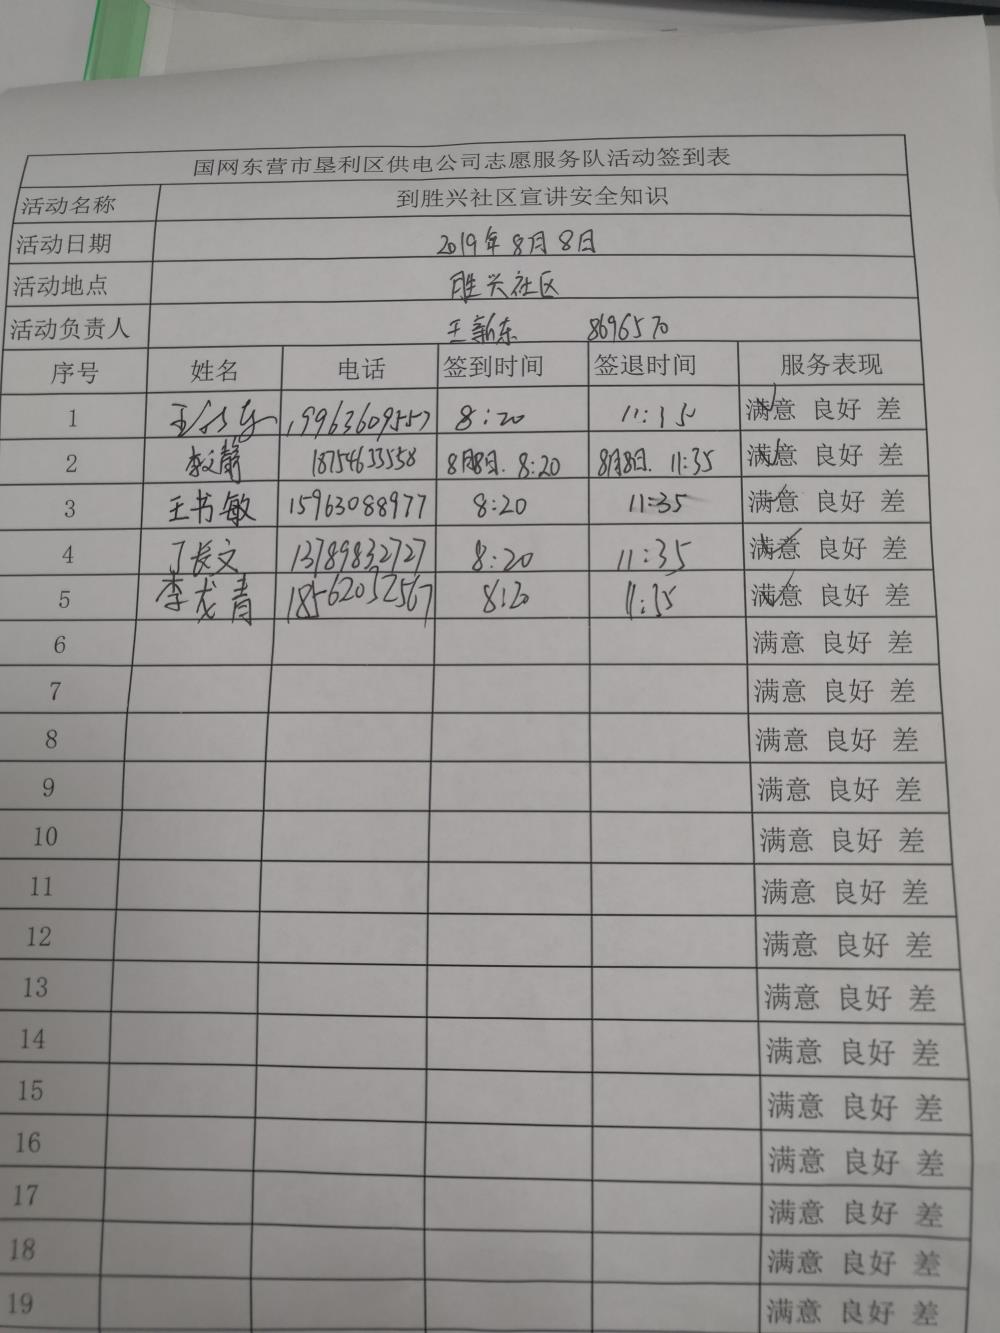 国网东营市垦利区供电公司志愿服务队活动签到表
活动名称 到胜兴社区宣讲安全知识
活动日期 2019年8月8日
活动地点 胜兴社区
活动负责人 王新东 8696570
序号 姓名 电话 签到时间 签退时间 服务表现
1 19963609557 8:20 11:35 满意 良好 差
2 李文静 18754633558 8月8日. 8:20 8月8日. 11:35 满意 良好 差
3 王书敏 15963088977 8:20 11:35 满意 良好 差
4 丁长文 13789832727 8:20 11:35 满意 良好 差
5 李戈青 18562032567 8:20 11:35 满意 良好 差
6 满意 良好 差
7 满意 良好 差
8 满意 良好 差
9 满意 良好 差
10 满意 良好 差
11 满意 良好 差
12 满意 良好 差
13 满意 良好 差
14 满意 良好 差
15 满意 良好 差
16 满意 良好 差
17 满意 良好 差
18 满意 良好 差
19 满意 良好 差